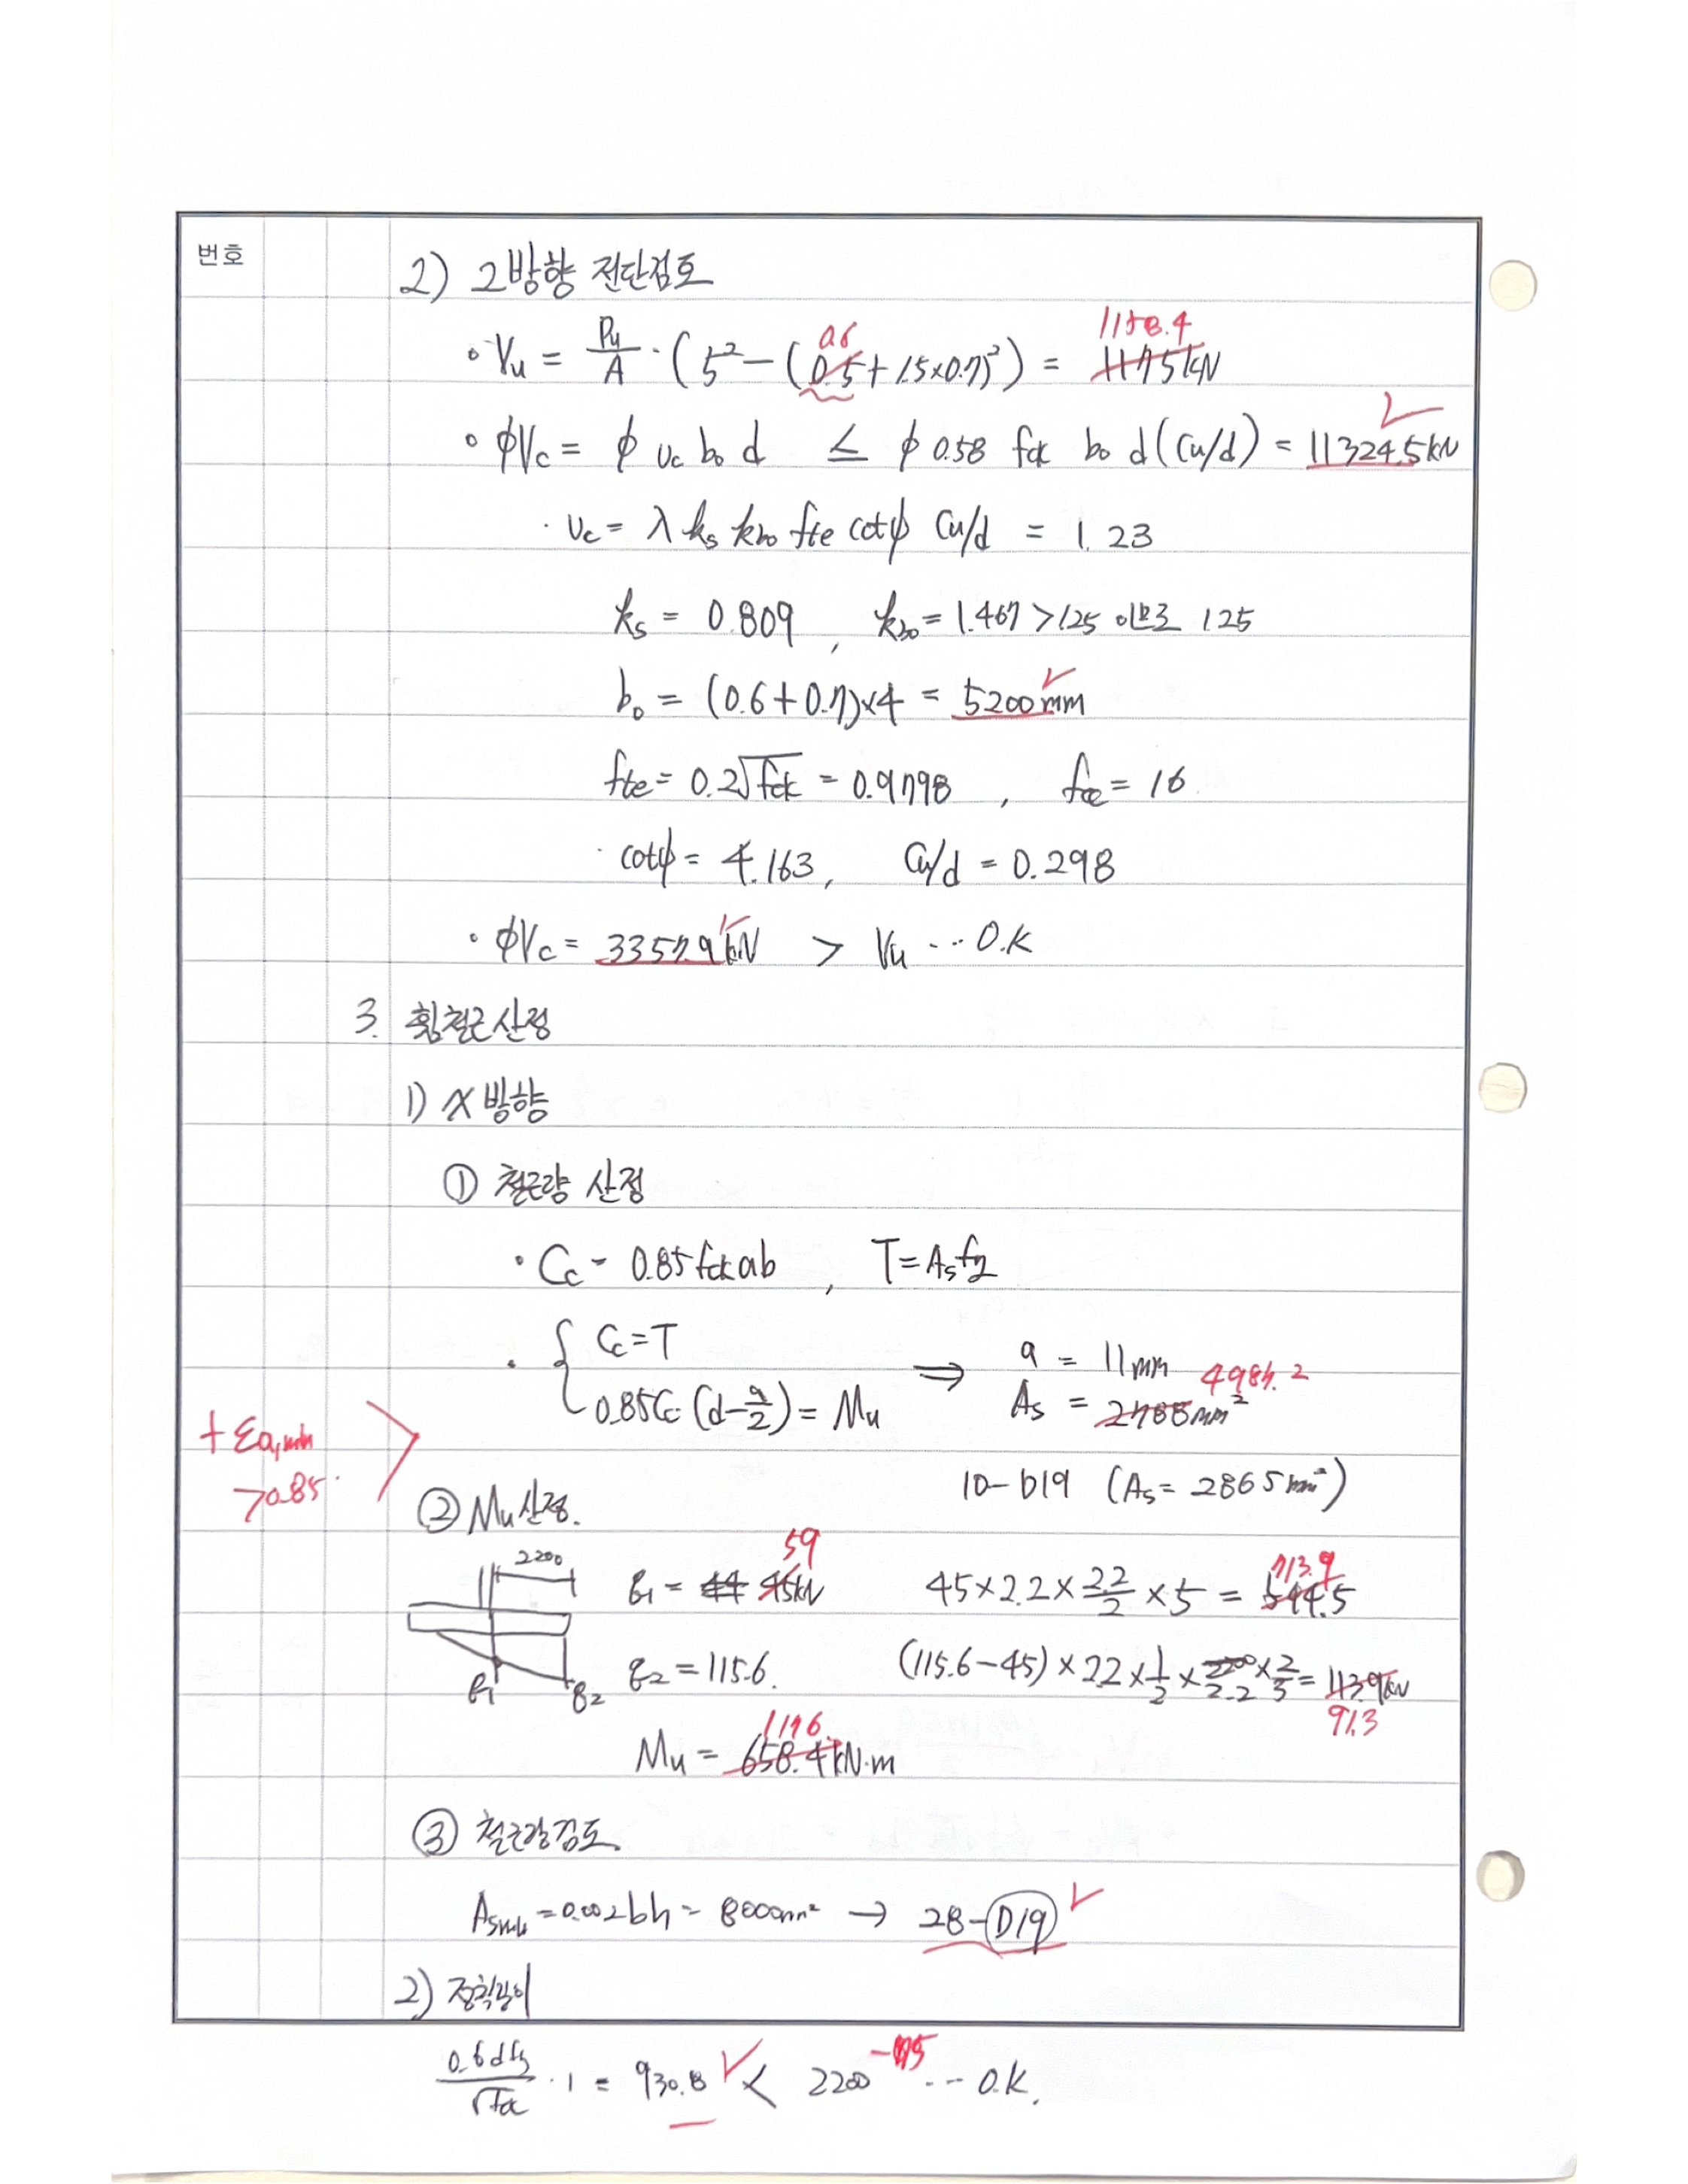 번호
2) 2방향 전단검토
1158.4
0.6
∘ Vu = Pu/A · (5² - (0.5 + 1.5×0.7)²) = 1175kN
∘ ϕVc = ϕ vc bo d ≤ ϕ 0.58 fck bo d (Cu/d) = 11324.5kN
· vc = λ ks kbo fte cotψ Cu/d = 1.23
ks = 0.809 , kbo = 1.467 > 1.25 이므로 1.25
bo = (0.6 + 0.7)×4 = 5200mm
fte = 0.2√fck = 0.9798 , fcc = 16
· cotψ = 4.163, Cu/d = 0.298
· ϕVc = 3357.9kN > Vu ··· O.K
3. 휨철근산정
1) X방향
① 철근량 산정
· Cc = 0.85fck ab , T = As fy
· { Cc = T ⇒ a = 11mm
0.85Cc (d - a/2) = Mu As = 2788mm² 4985.2
+ εa,min
> 0.85
10-D19 (As = 2865mm²)
② Mu산정.
2200
59
713.9
q1 = 44 45kN 45×2.2×2.2/2×5 = 544.5
q1 q2
q2 = 115.6. (115.6-45)×2.2×1/2×2200/2.2×2/3 = 113.9kN
91.3
1176.
Mu = 658.4kN·m
③ 철근량검토
Asmin = 0.002bh = 8000mm² → 28-D19
2) 정착길이
0.6dfy/√fck · 1 = 930.8 < 2200 -75 ··· O.K.